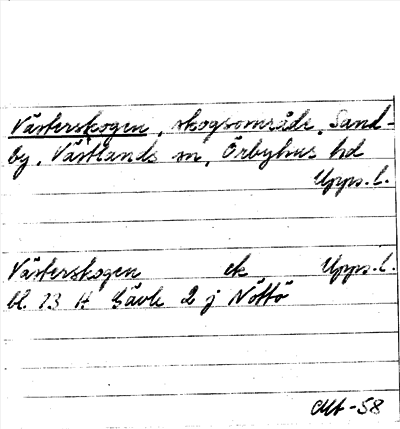 Västerskogen, skogsområde, Sand-
by, Västlands sn, Örbyhus hd
Upps.l.
Västerskogen ek Upps.l.
bl. 13 H Gävle 2 j Nöttö
-58